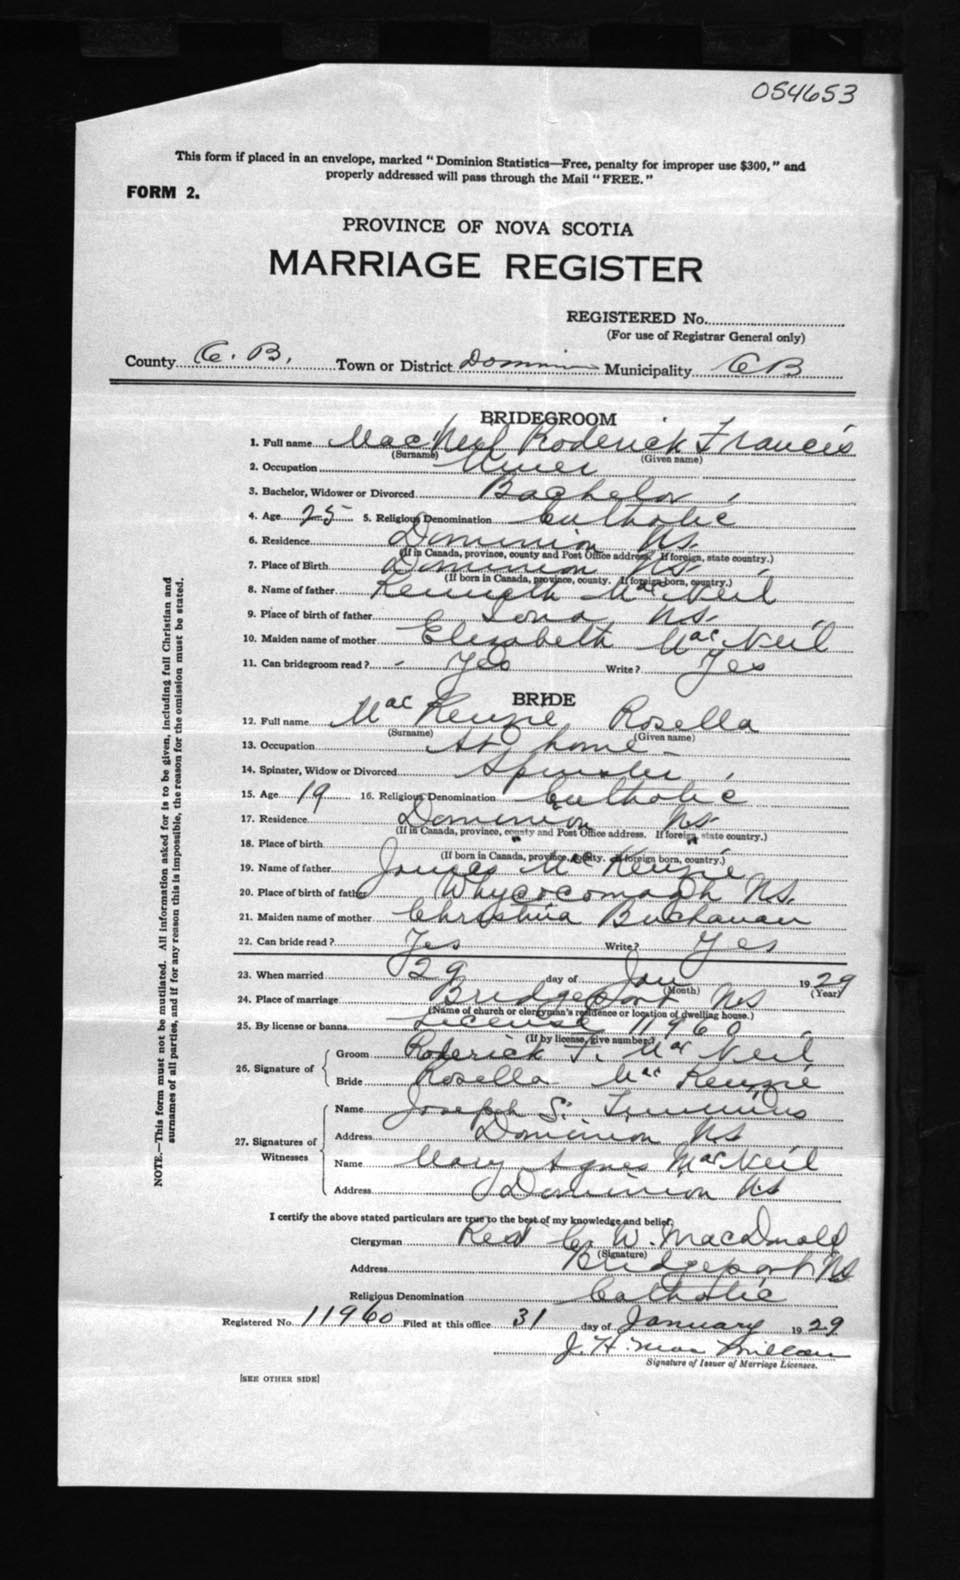 054653
This form if placed in an envelope, marked "Dominion Statistics—Free, penalty for improper use $300," and
properly addressed will pass through the Mail "FREE."
FORM 2.
PROVINCE OF NOVA SCOTIA
MARRIAGE REGISTER
REGISTERED No.
(For use of Registrar General only)
County C. B. Town or District Dominion Municipality CB
BRIDEGROOM
1. Full name MacNeil Roderick Francis
(Surname) (Given name)
2. Occupation Miner
3. Bachelor, Widower or Divorced Bachelor
4. Age 25 5. Religious Denomination Catholic
6. Residence Dominion NS.
(If in Canada, province, county and Post Office address. If foreign, state country.)
7. Place of Birth Dominion NS.
(If born in Canada, province, county. If foreign born, country.)
8. Name of father Kenneth MacNeil
9. Place of birth of father Iona, NS.
10. Maiden name of mother Elizabeth MacNeil
11. Can bridegroom read? - Yes Write? Yes
BRIDE
12. Full name MacKenzie Rosella
(Surname) (Given name)
13. Occupation At home -
14. Spinster, Widow or Divorced Spinster
15. Age 19 16. Religious Denomination Catholic
17. Residence Dominion NS
(If in Canada, province, county and Post Office address. If foreign, state country.)
18. Place of birth " "
(If born in Canada, province, county. If foreign born, country.)
19. Name of father James MacKenzie
20. Place of birth of father Whycocomagh NS.
21. Maiden name of mother Christina Buchanan
22. Can bride read? Yes Write? Yes
23. When married 29 day of Jan 1929
(Month) (Year)
24. Place of marriage Bridgeport NS
(Name of church or clergyman's residence or location of dwelling house.)
25. By license or banns License 11960
(If by license, give number.)
26. Signature of Groom Roderick F. MacNeil
Bride Rosella MacKenzie
27. Signatures of Witnesses Name Joseph S. Timmins
Address Dominion NS
Name Mary Agnes MacNeil
Address Dominion NS
I certify the above stated particulars are true to the best of my knowledge and belief.
Clergyman Rev C. W. MacDonald
(Signature)
Address Bridgeport NS
Religious Denomination Catholic
Registered No. 11960 Filed at this office 31 day of January 1929
J. H. MacMillan
Signature of Issuer of Marriage Licenses.
[SEE OTHER SIDE]
NOTE.—This form must not be mutilated. All information asked for is to be given, including full Christian and
surnames of all parties, and if for any reason this is impossible, the reason for the omission must be stated.